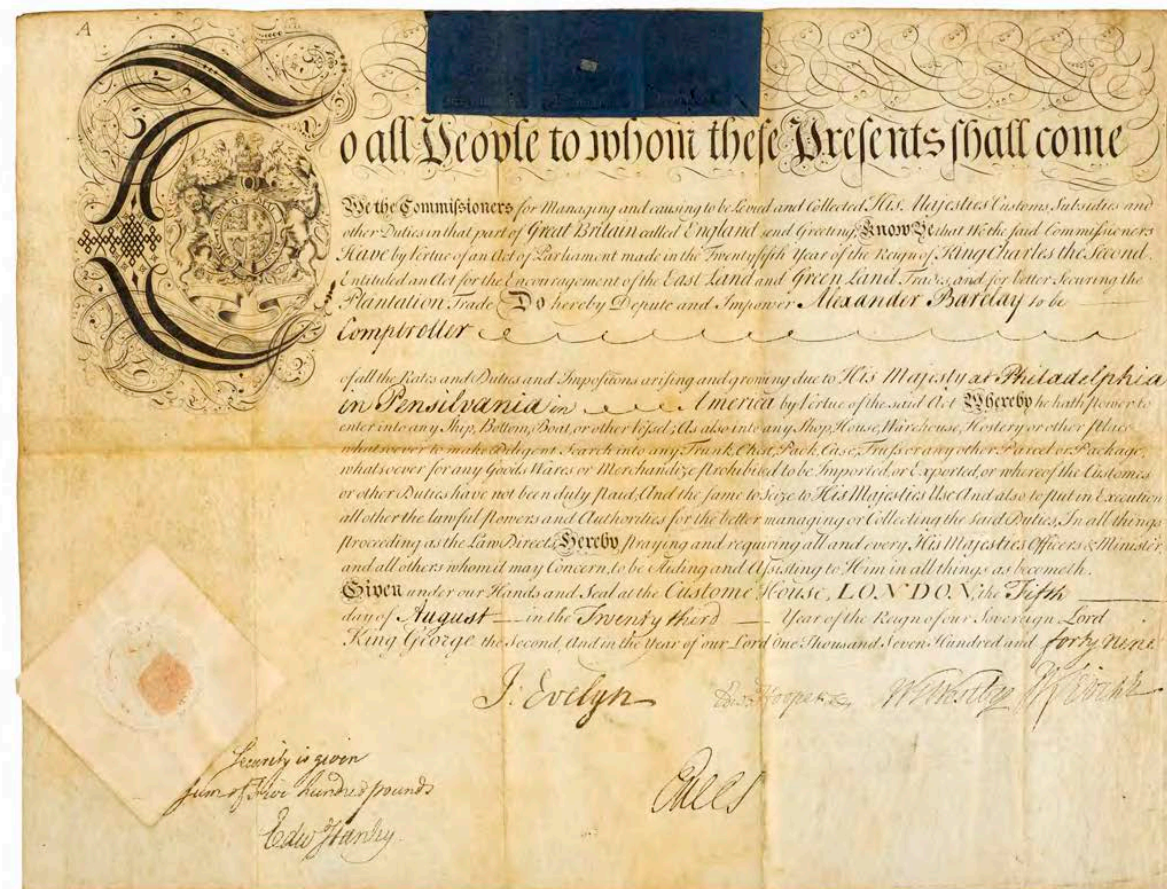 A
To all People to whom these Presents shall come
We the Commissioners for Managing and causing to be Levied and Collected His Majesties Customs Subsidies and
other Duties in that part of Great Britain called England send Greeting, Know Ye that We the said Commissioners
Have by Vertue of an Act of Parliament made in the Twenty fifth Year of the Reign of King Charles the Second,
Entituled an Act for the Encouragement of the East Land and Green Land Trades, and for better Securing the
Plantation Trade Do hereby Depute and Impower Alexander Barclay to be
Comptroller
of all the Rates and Duties and Impositions arising and growing due to His Majesty at Philadelphia
in Pensilvania in America by Vertue of the said Act Whereby he hath power to
enter into any Ship, Bottom, Boat, or other Vessel; As also into any Shop, House, Warehouse, Hostery or other place
whatsoever to make Diligent Search into any Trunk, Chest, Pack, Case, Truss or any other Parcel or Package,
whatsoever for any Goods Wares or Merchandize prohibited to be Imported, or Exported, or whereof the Customes
or other Duties have not been duly paid, And the same to Seize to His Majesties Use And also to put in Execution
all other the lawful powers and Authorities for the better managing or Collecting the said Duties, In all things
proceeding as the Law Directs, Hereby praying and requiring all and every His Majesties Officers & Minister
and all others whom it may Concern, to be Aiding and Assisting to Him in all things as becometh.
Given under our Hands and Seal at the Custome House, LONDON, the Fifth
day of August in the Twenty third Year of the Reign of our Sovereign Lord
King George the Second, And in the Year of our Lord One Thousand Seven Hundred and forty nine
J: Evelyn
Security is given
sum of Five hundred pounds
Edw Hanby